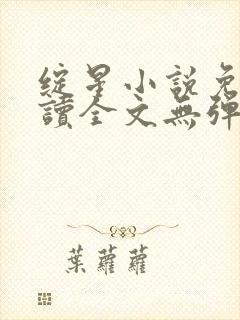 綻星小說免
讀全文無彈
葉蘿蘿